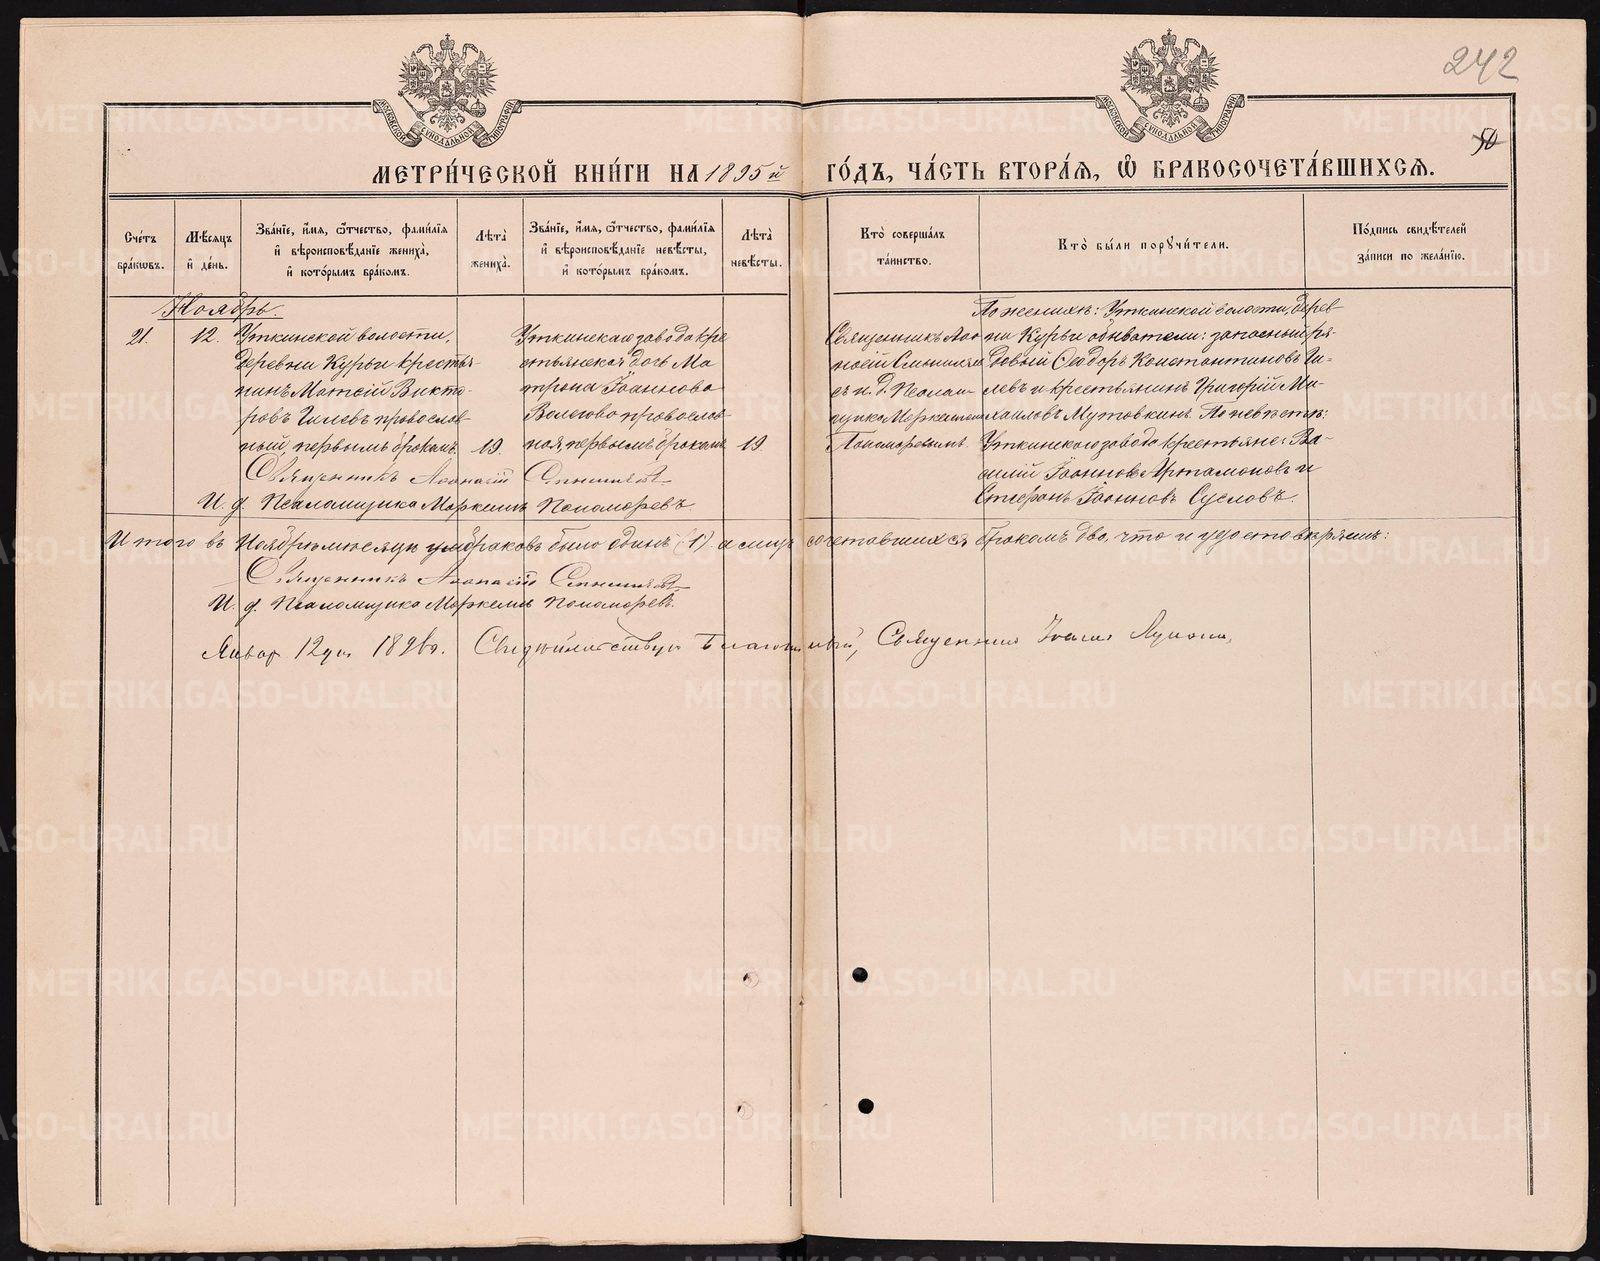 242
50
МОСКОВСКОЙ СУНОДАЛЬНОЙ ТИПОГРАФІИ
МОСКОВСКОЙ СУНОДАЛЬНОЙ ТИПОГРАФІИ
МЕТРИ́ЧЕСКОЙ КНИ́ГИ НА 1895й ГО́ДЪ, ЧА́СТЬ ВТОРА́Я, Ѡ БРАКОСОЧЕТА́ВШИХСЯ.
Сче́тъ
бра́кωвъ.
Мѣ́сяцъ
и де́нь.
Зва́нїе, и́мя, ѻ́тчество, фами́лїя
и вѣроисповѣ́данїе жениха̀,
и кото́рымъ бра́комъ.
Лѣта̀
жениха̀.
Зва́нїе, и́мя, ѻ́тчество, фами́лїя
и вѣроисповѣ́данїе невѣ́сты,
и кото́рымъ бра́комъ.
Лѣта̀
невѣ́сты.
Кто̀ соверша́лъ
та́инство.
Кто̀ бы́ли поручи́тели.
По́дпись свидѣ́телей
за́писи по жела́нїю.
Ноябрь.
21.
12.
Уткинской волости,
деревни Курьи крестья-
нинъ Матѳій Викто-
ровъ Гилевъ православ-
ный, первымъ бракомъ.
19.
Уткинскаго завода кре
стьянская дочь Ма
трона Іоаннова
православ-
ная, первымъ бракомъ
19
Священникъ Аѳа-
насій
и. д. Псалом-
щика Маркеллъ
Пономаревъ.
По женихѣ: Уткинской волости, дерев
ни Курьи обыватели: запасный ря-
довый Ѳеодоръ Константиновъ Ги-
левъ и крестьянинъ Григорій Ми-
хаиловъ Мутовкинъ. По невѣстѣ:
Уткинскаго завода крестьяне: Ва-
силій Іоанновъ Артамоновъ и
Стефанъ Іоанновъ Сусловъ.
Священникъ Аѳанасій
И. д. Псаломщика Маркеллъ Пономаревъ.
Итого въ Ноябрѣ мѣсяцѣ браковъ было одинъ (1). а лицъ сочетавшихся бракомъ два, что и удостовѣряемъ:
Священникъ Аѳанасій
И. д. Псаломщика Маркеллъ Пономаревъ.
Январ 12 дня 1896 г. Свидѣтельствую Благочинный, Священникъ Іоаннъ
METRIKI.GASO-URAL.RU